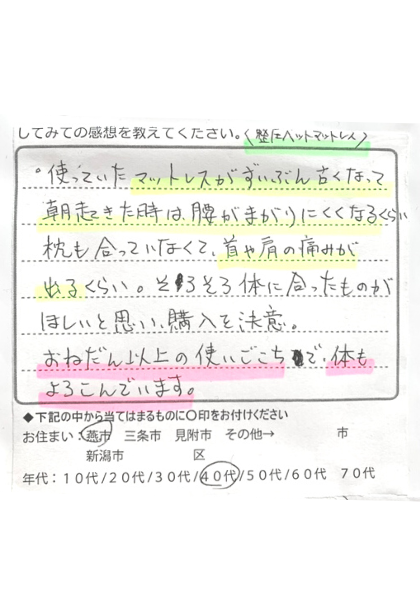 してみての感想を教えてください。〈整圧ヘッドマットレス〉
°使っていたマットレスがずいぶん古くなって
朝起きた時は、腰がまがりにくくなるくらい
枕も合っていなくて、首や肩の痛みが
出るくらい。そろそろ体に合ったものが
ほしいと思い、購入を決意。
おねだん以上の使いごこちで、体も
よろこんでいます。
◆下記の中から当てはまるものに〇印をお付けください
お住まい：燕市　三条市　見附市　その他→　　　　市
新潟市　　　　　区
年代：10代/20代/30代/40代/50代/60代 70代